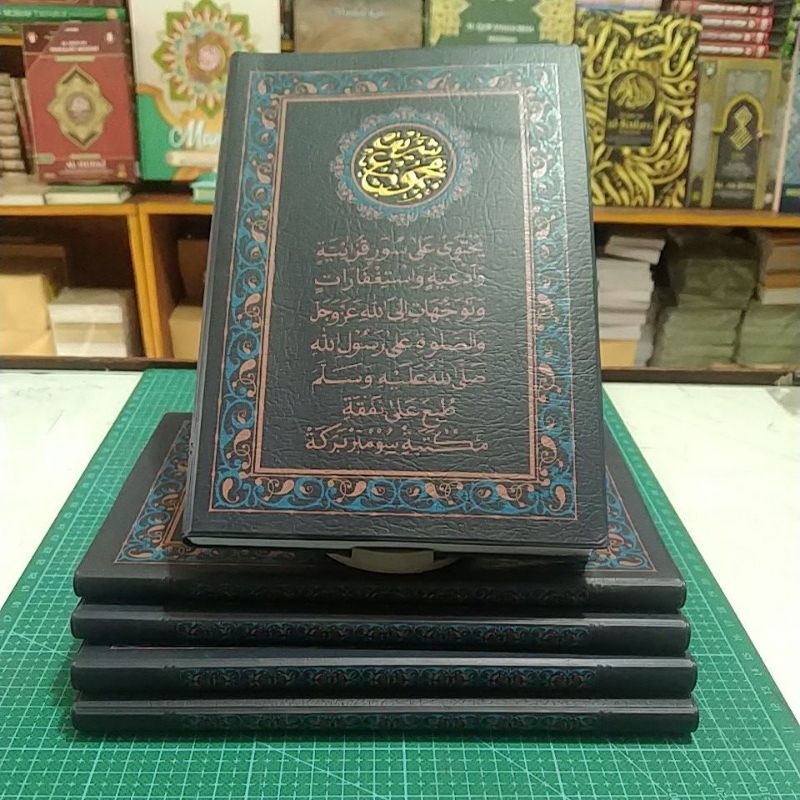 مجموع شريف
يَحْتَوِى عَلَى سُوَرٍ قُرَانِيَةٍ
وَادْعِيَةٍ وَاسْتِغْفَارَاتٍ
وَتَوَجُّهَاتٍ اِلَى اللهِ عَزَّ وَجَلَّ
وَالصَّلٰوةِ عَلَى رَسُوْلِ اللهِ
صَلَّى اللهُ عَلَيْهِ وَسَلَّمَ
طُبِعَ عَلَى نَفَقَةِ
مَكْتَبَةِ سُوْمْبَرْ بَرَكَةْ